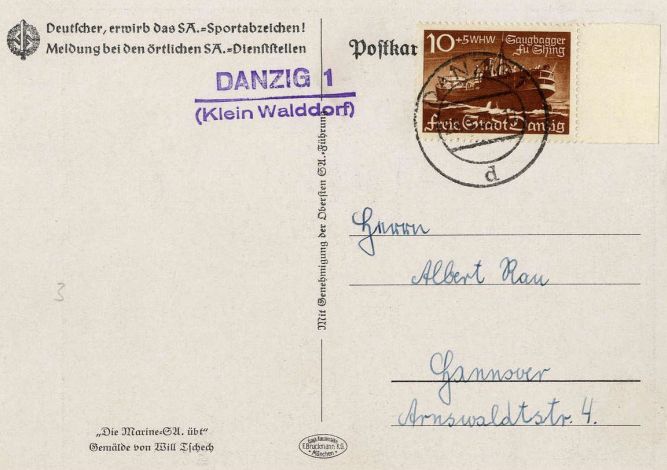 Deutscher, erwirb das SA.-Sportabzeichen!
Meldung bei den örtlichen SA.-Dienststellen
Postkar
DANZIG 1
(Klein Walddorf)
10+5 WHW Saugbagger
Fu Shing
Freie Stadt Danzig
DANZIG
d
Mit Genehmigung der Obersten SA.-Führung
Herrn
Albert Rau
Hannover
Arnswaldtstr. 4.
3
„Die Marine-SA. übt"
Gemälde von Will Tschech
F. Bruckmann K.G.
München